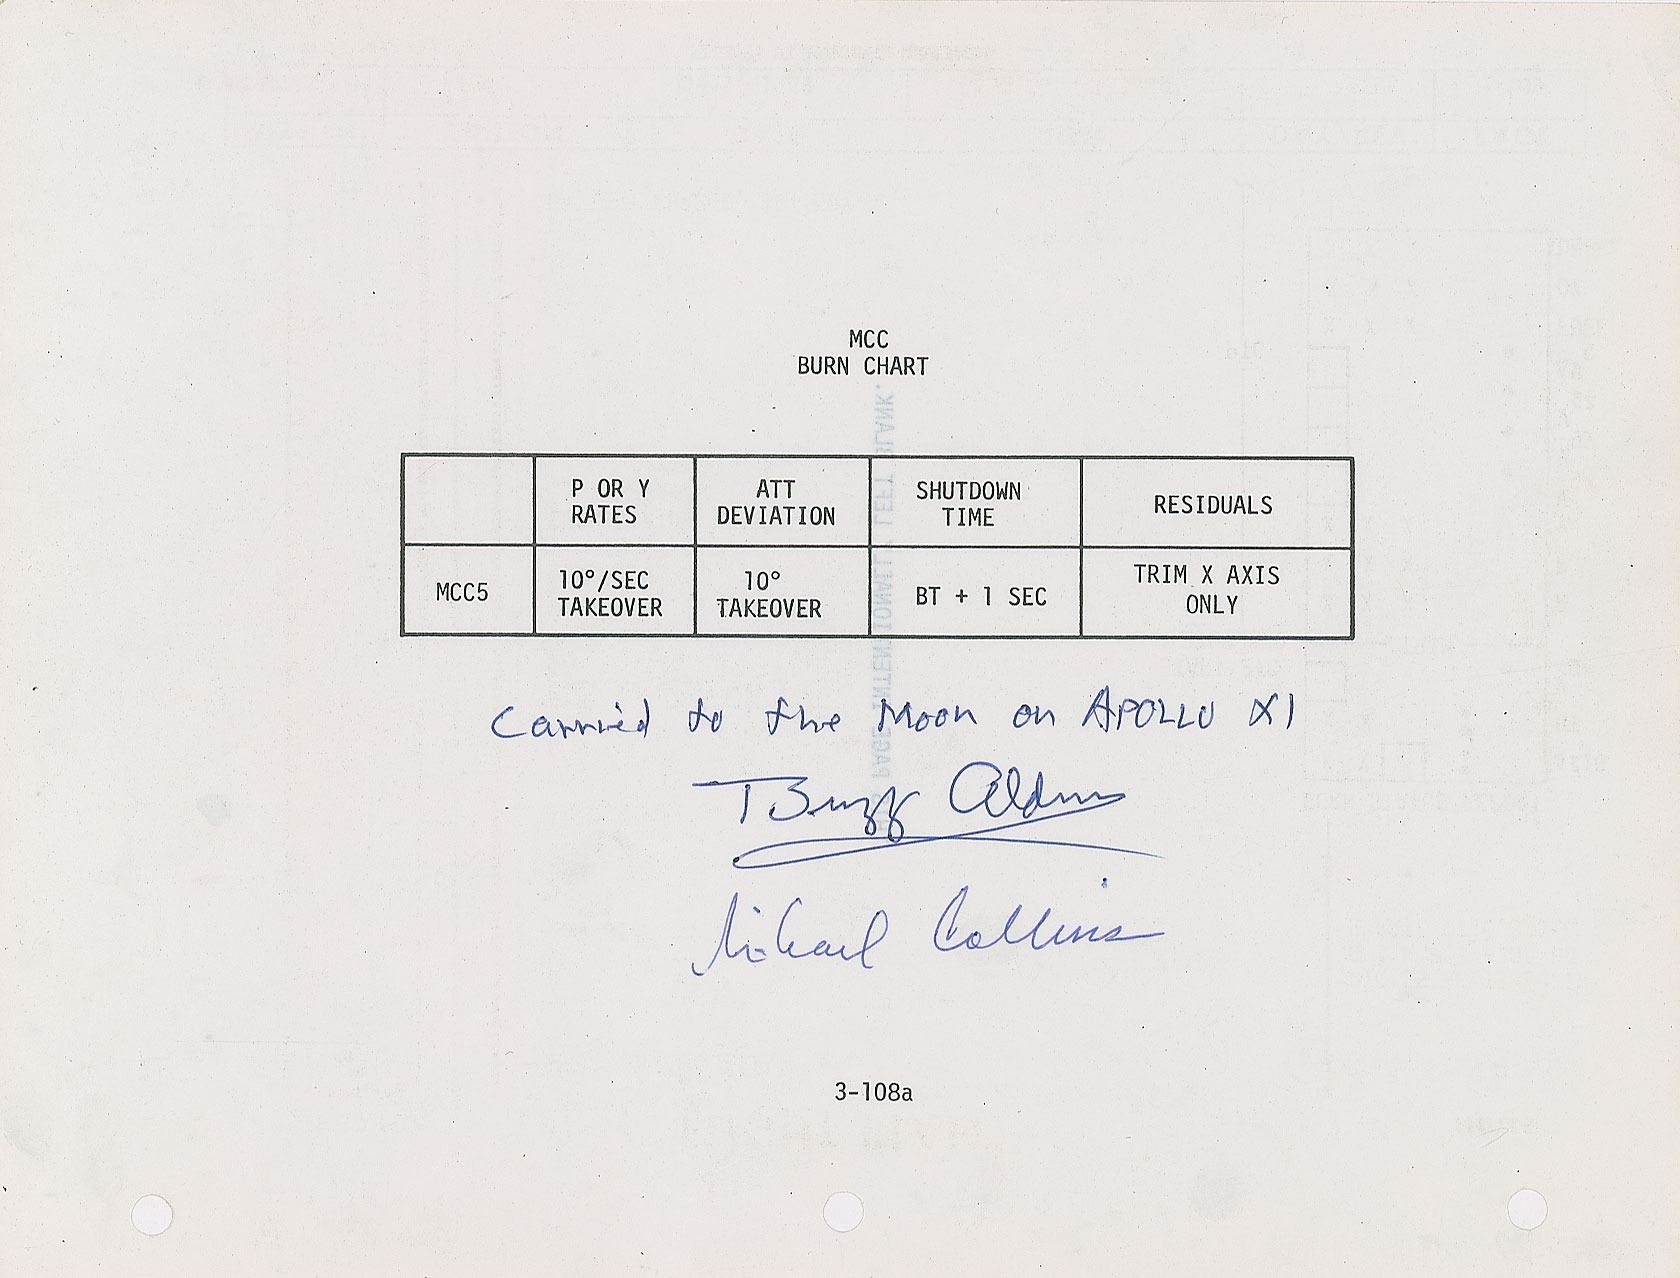 MCC
BURN CHART
P OR Y
RATES
ATT
DEVIATION
SHUTDOWN
TIME
RESIDUALS
MCC5
10°/SEC
TAKEOVER
10°
TAKEOVER
BT + 1 SEC
TRIM X AXIS
ONLY
PAGE INTENTIONALLY LEFT BLANK.
Carried to the Moon on APOLLO XI
Buzz Aldrin
Michael Collins
3-108a